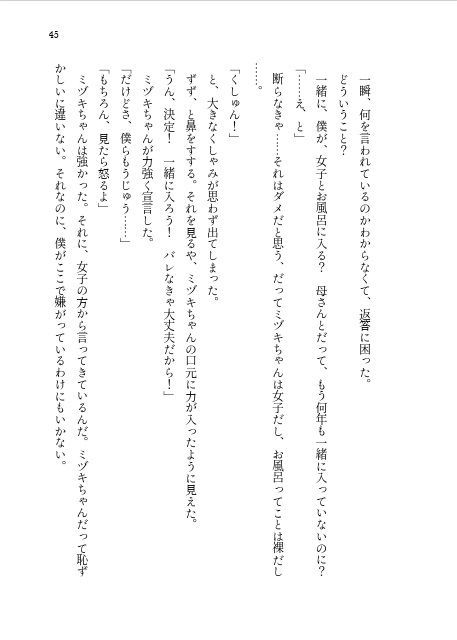 45
一瞬、何を言われているのかわからなくて、返答に困った。
どういうこと?
一緒に、僕が、女子とお風呂に入る? 母さんとだって、もう何年も一緒に入っていないのに?
「……え、と」
断らなきゃ……それはダメだと思う、だってミヅキちゃんは女子だし、お風呂ってことは裸だし
……。
「くしゅん!」
と、大きなくしゃみが思わず出てしまった。
ずず、と鼻をすする。それを見るや、ミヅキちゃんの口元に力が入ったように見えた。
「うん、決定! 一緒に入ろう! バレなきゃ大丈夫だから!」
ミヅキちゃんが力強く宣言した。
「だけどさ、僕らもうじゅう……」
「もちろん、見たら怒るよ」
ミヅキちゃんは強かった。それに、女子の方から言ってきているんだ。ミヅキちゃんだって恥ず
かしいに違いない。それなのに、僕がここで嫌がっているわけにもいかない。